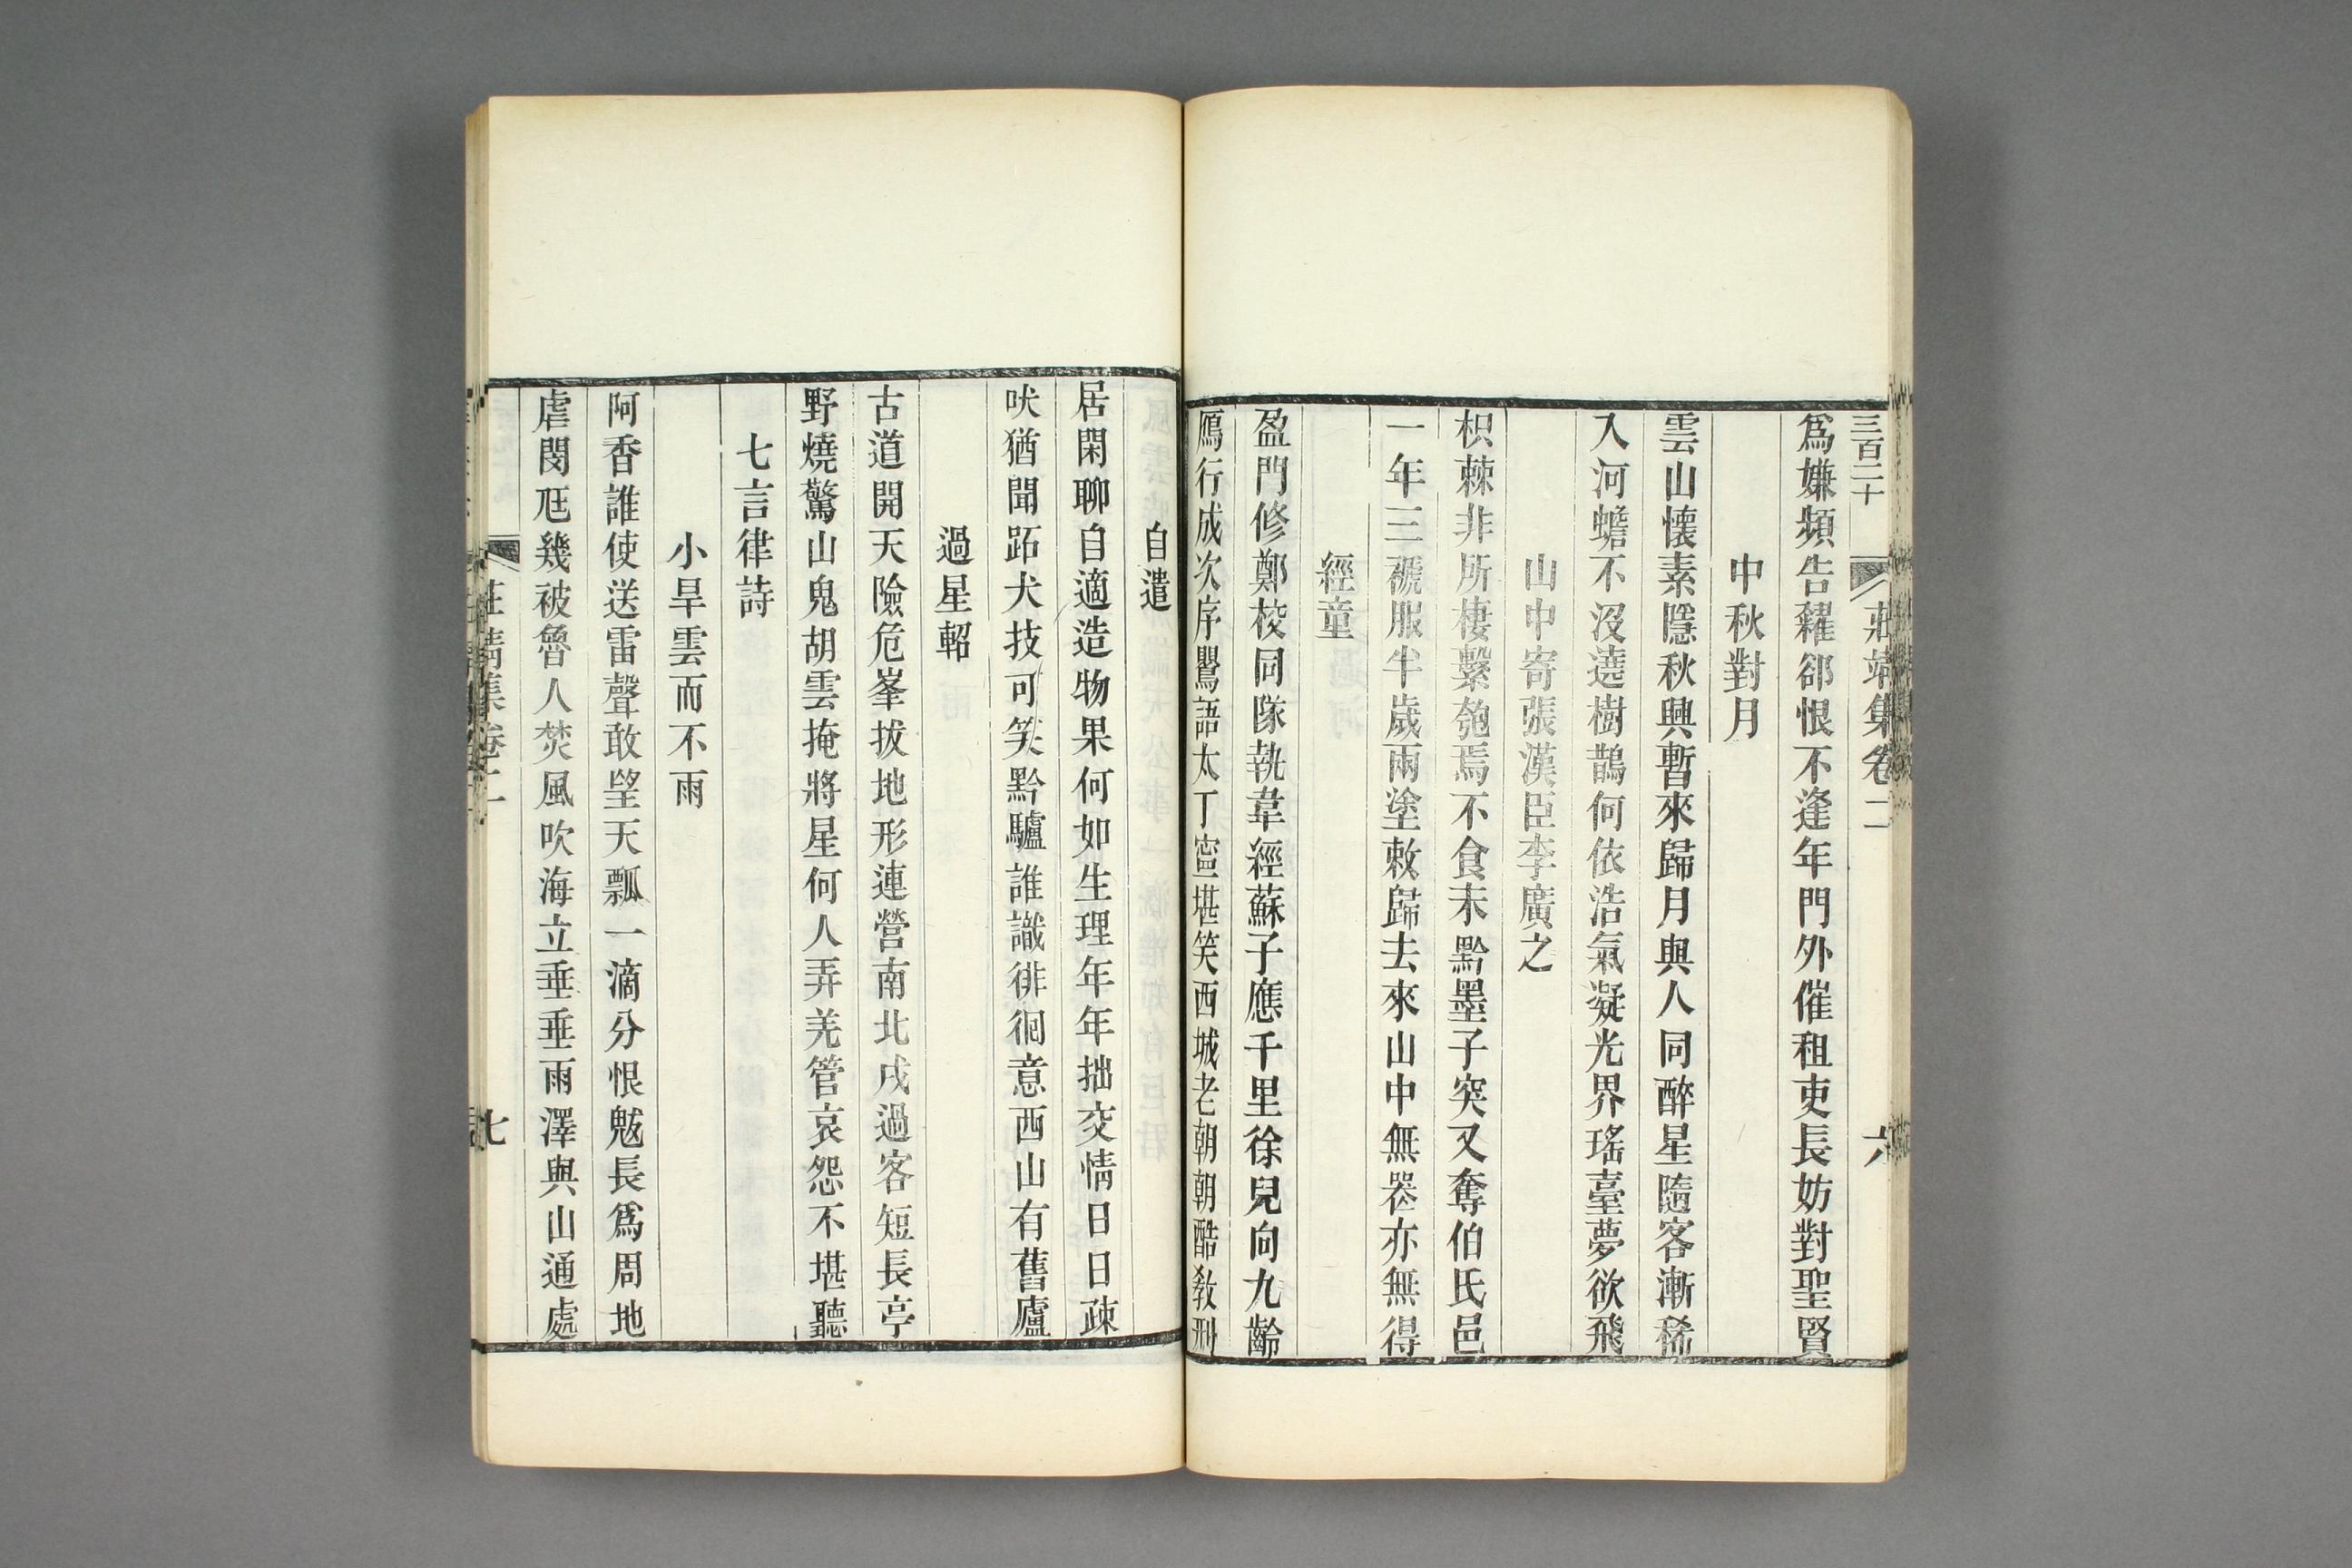 三百二十
莊靖集卷二
六
爲嫌頻告糴郤恨不逢年門外催租吏長妨對聖賢
中秋對月
雲山懷素隱秋興暫來歸月與人同醉星隨客漸稀
入河蟾不沒遶樹鵲何依浩氣凝光界瑤臺夢欲飛
山中寄張漢臣李廣之
枳棘非所棲繫匏焉不食未黔墨子突又奪伯氏邑
一年三褫服半歲兩塗敕歸去來山中無器亦無得
經童
盈門修鄭校同隊執韋經蘇子應千里徐兒向九齡
鴈行成次序鸎語太丁寍堪笑西城老朝朝酷教刑
自遣
居閑聊自適造物果何如生理年年拙交情日日疎
吠猶聞跖犬技可笑黔驢誰識徘徊意西山有舊廬
過星軺
古道開天險危峯拔地形連營南北戍過客短長亭
野燒驚山鬼胡雲掩將星何人弄羌管哀怨不堪聽
七言律詩
小旱雲而不雨
阿香誰使送雷聲敢望天瓢一滴分恨魃長爲周地
虐閔尫幾被魯人焚風吹海立垂垂雨澤與山通處
莊靖集卷二
七